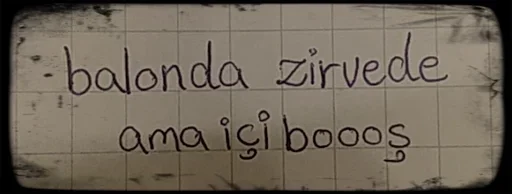 balonda zirvede
ama içi boooş